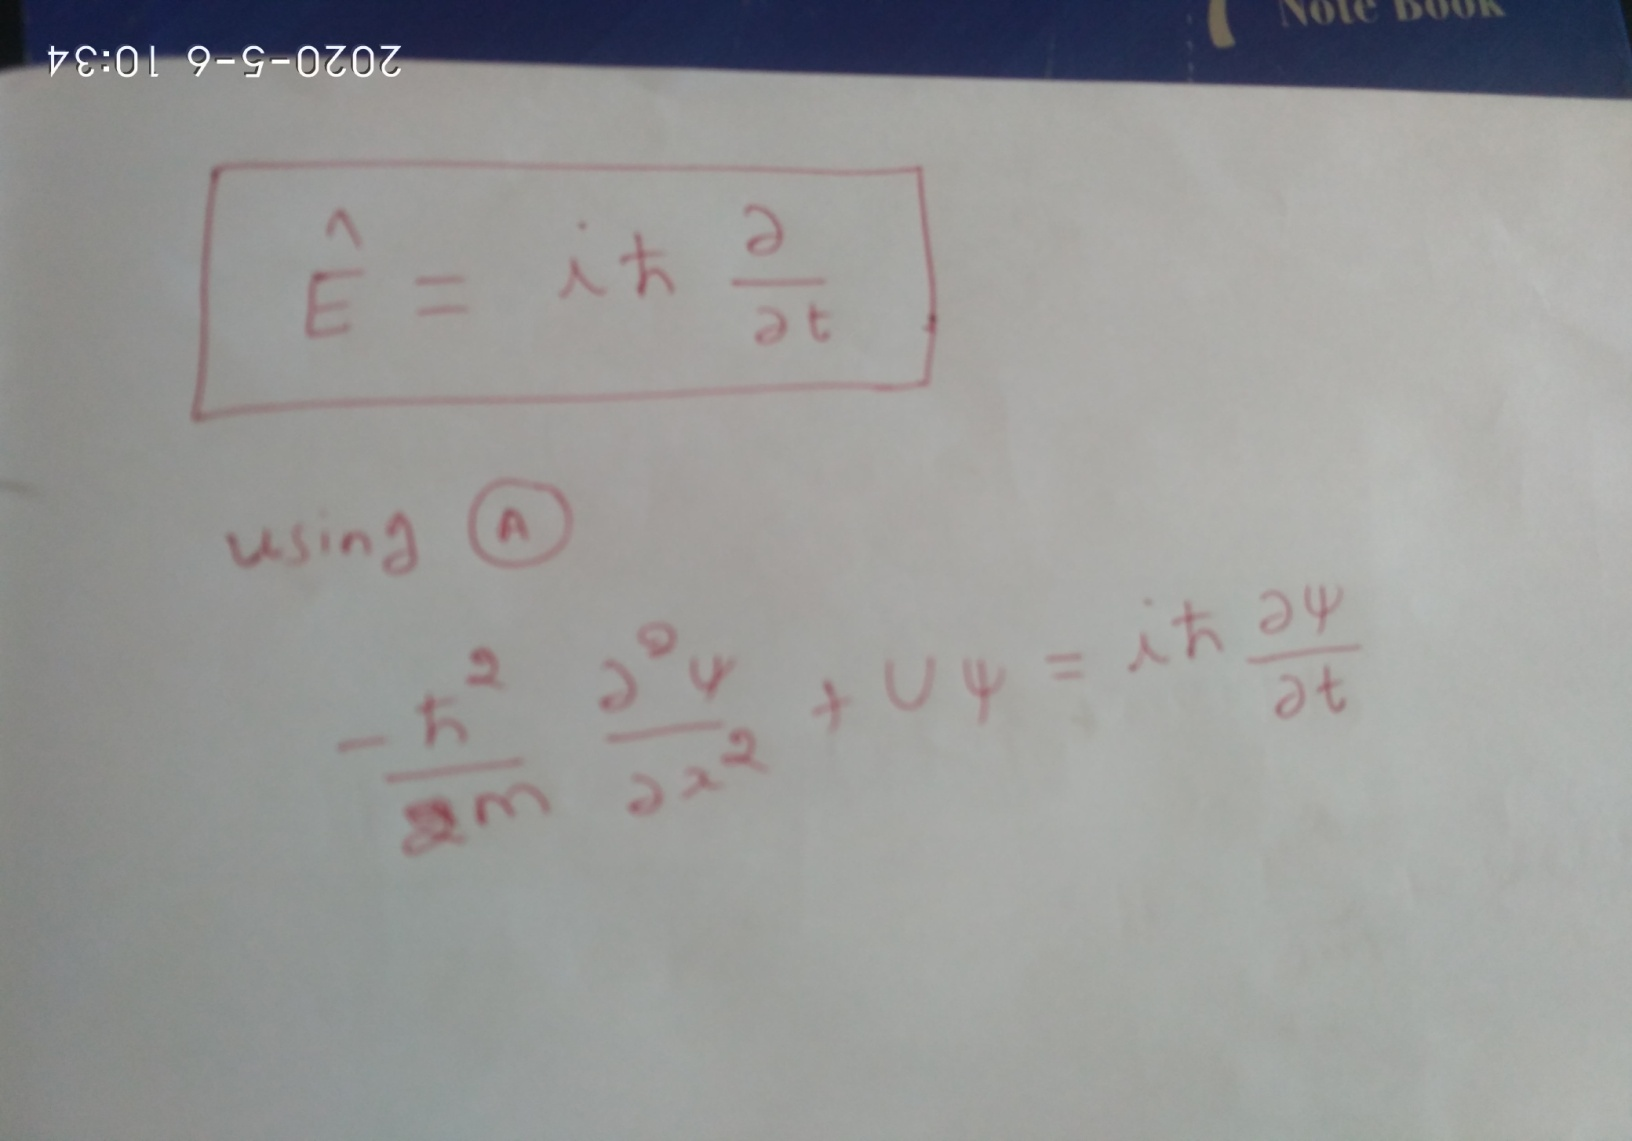 Note Book
2020-5-6 10:34
Ê = iħ ∂/∂t
using Ⓐ
-ħ²/2m ∂²ψ/∂x² + Uψ = iħ ∂ψ/∂t